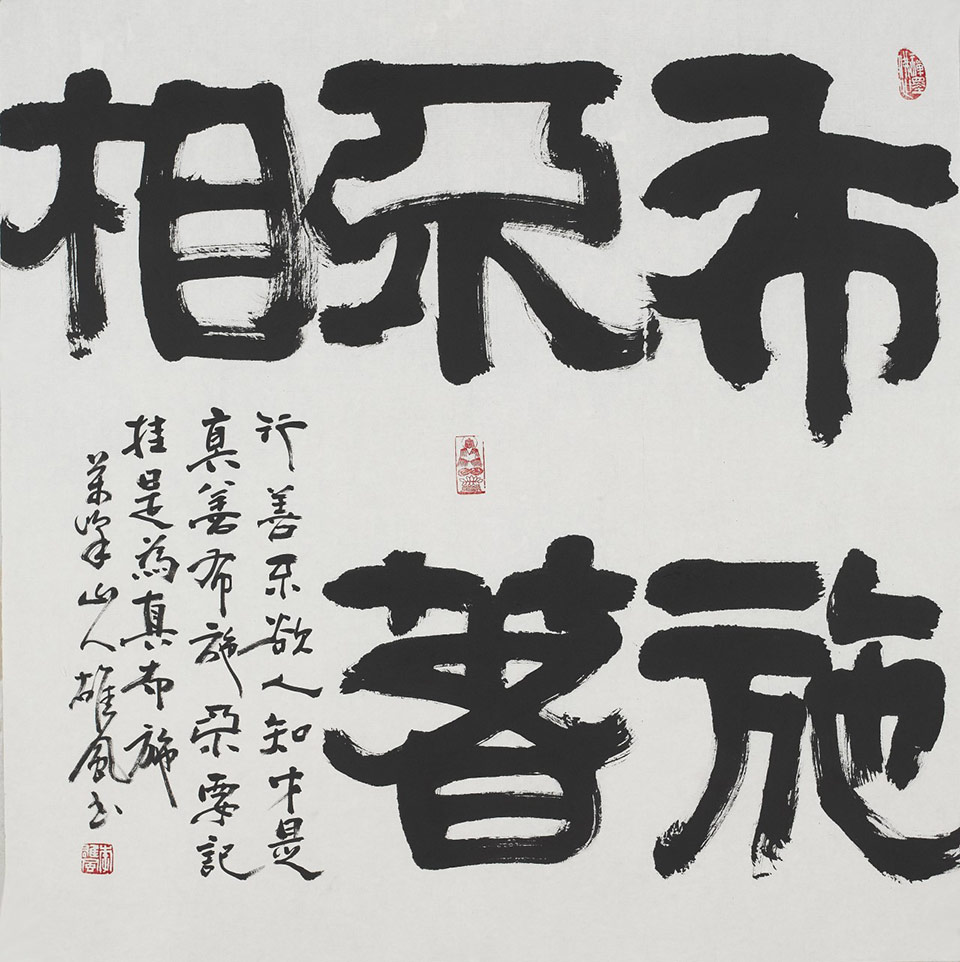 布施
不著
相
行善不欲人知才是
真善布施不要記
挂是為真布施
山人雄風书